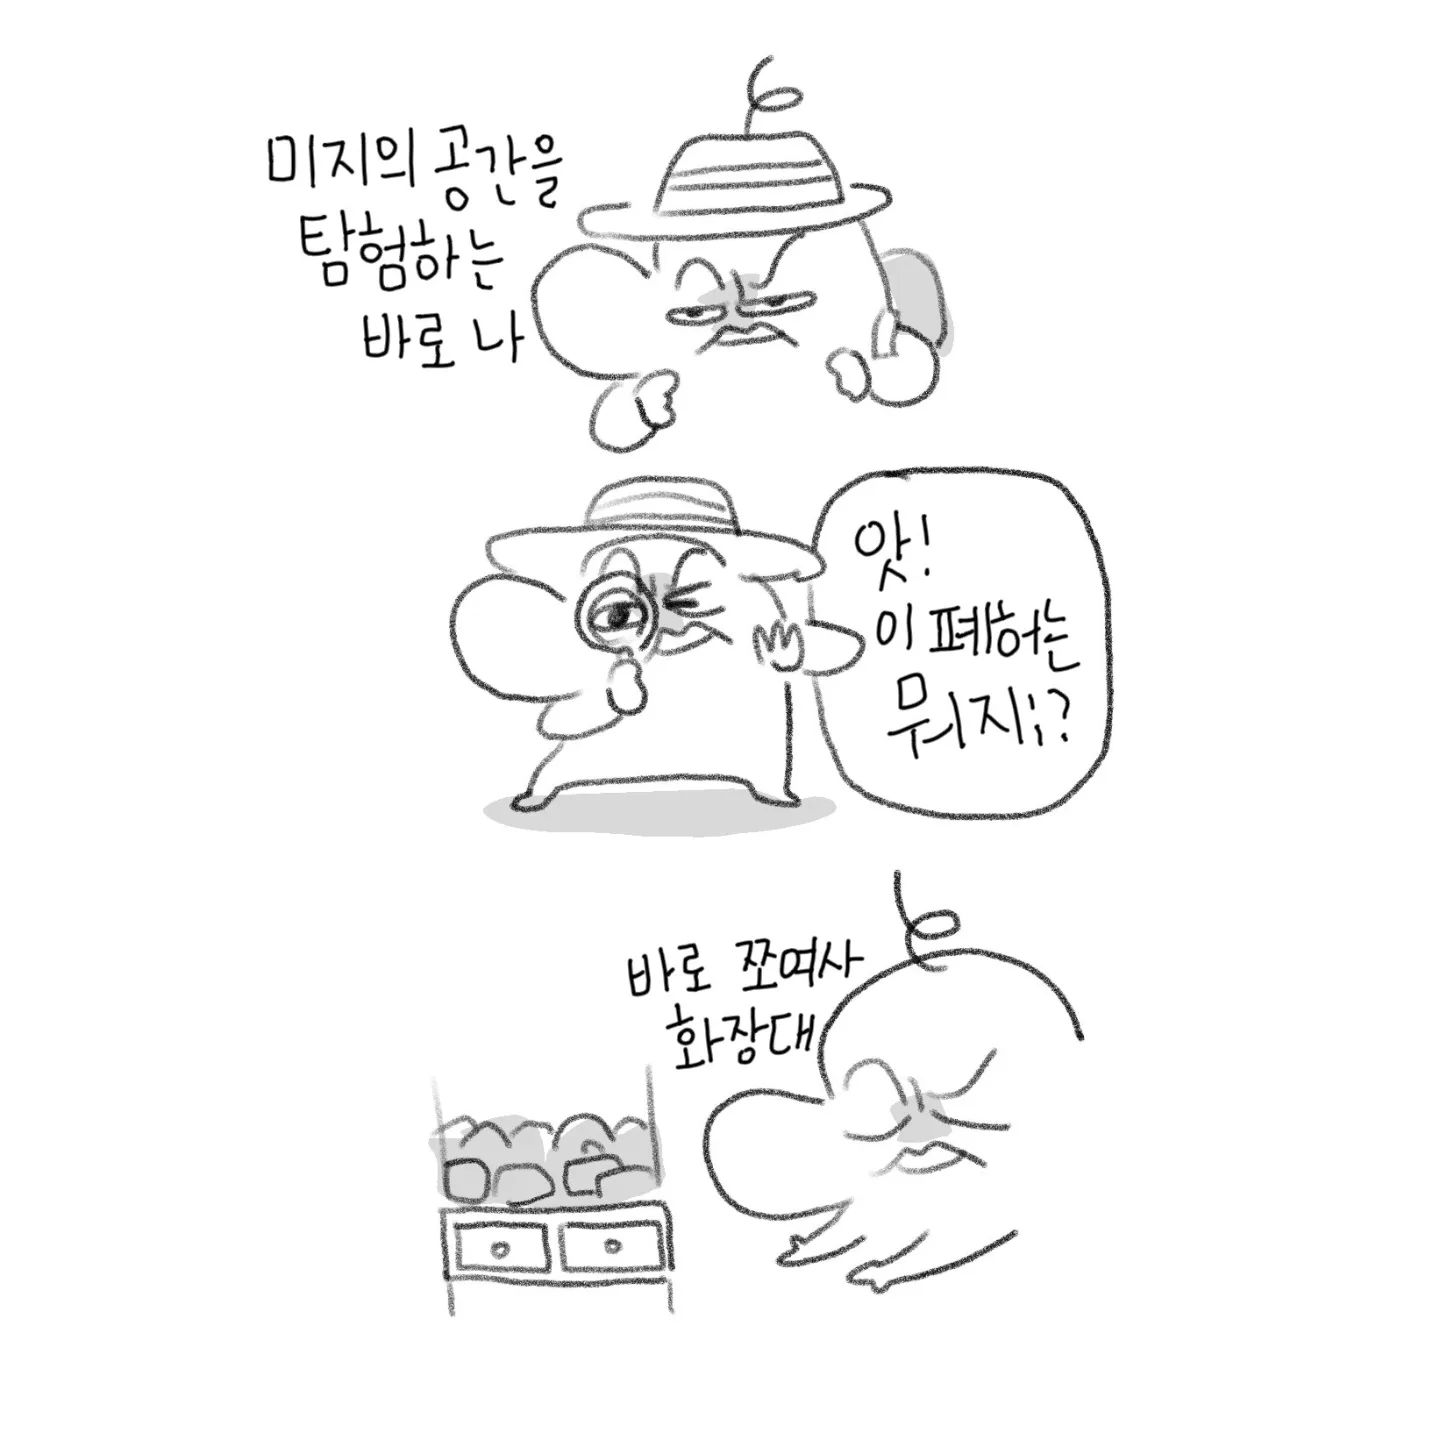 미지의 공간을
탐험하는
바로 나
앗!
이 폐허는
뭐지;?
바로 쪼여사
화장대